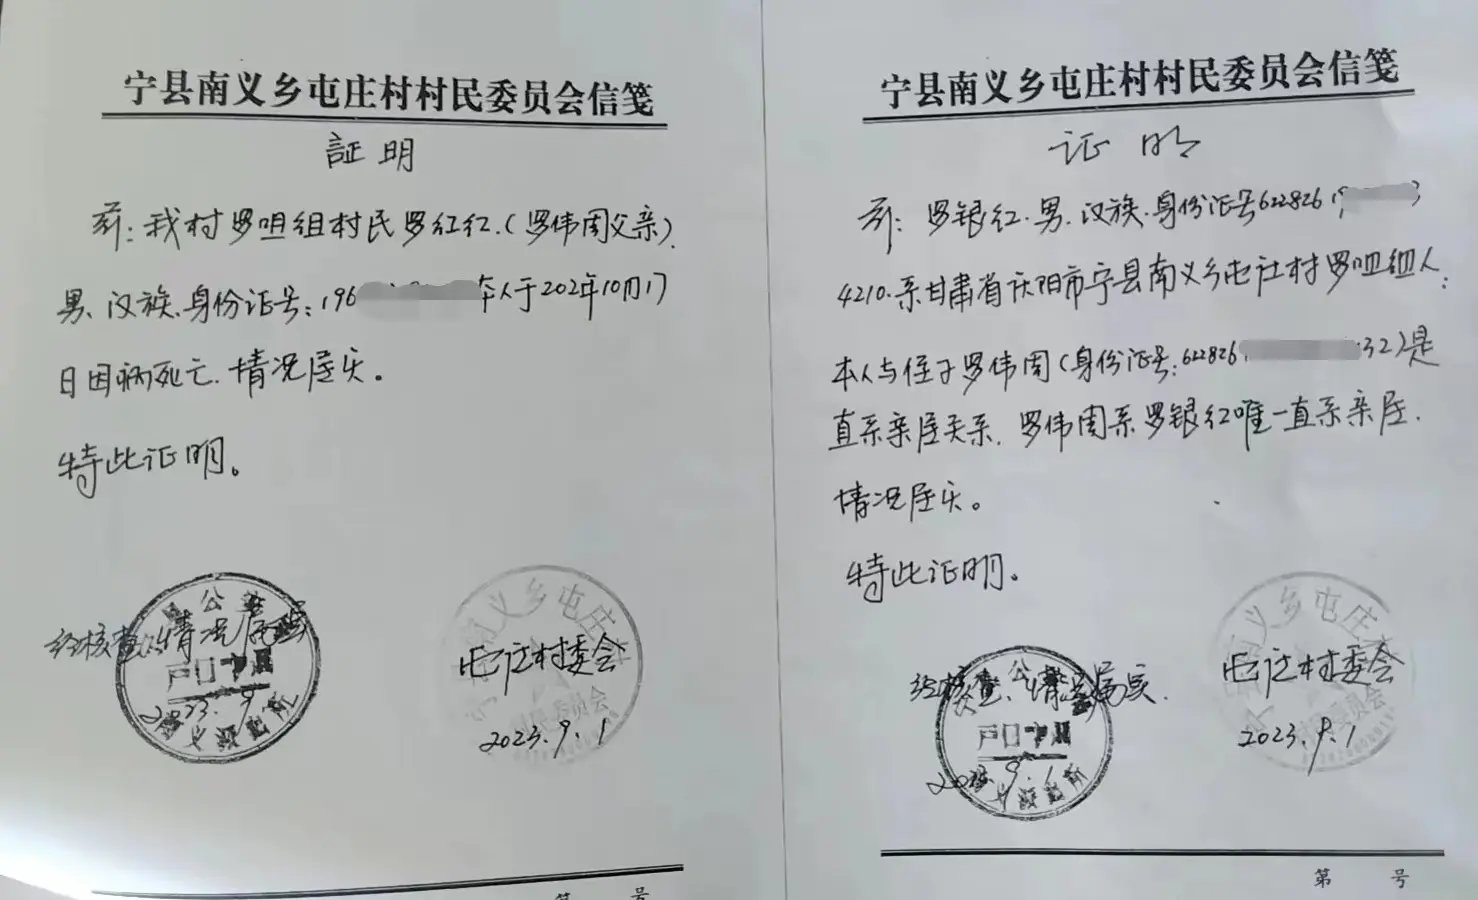 宁县南义乡屯庄村村民委员会信笺
証明
兹：我村罗咀组村民罗红红.（罗伟周父亲）.
男、汉族.身份证号：196 本人于202年10月17
日因病死亡.情况属实。
特此证明。
经核查，情况属实
户口专用
2023.9.1
南义乡屯庄村
村民委员会
屯庄村委会
2023.9.1
第 号
宁县南义乡屯庄村村民委员会信笺
证明
兹：罗银红.男.汉族.身份证号622826 19 3
4210.系甘肃省庆阳市宁县南义乡屯庄村罗咀组人；
本人与侄子罗伟周（身份证号：622826 32）是
直系亲属关系.罗伟周系罗银红唯一直系亲属.
情况属实。
特此证明。
经核查、情况属实.
户口专用
2023.9.1
南义乡屯庄村
村民委员会
屯庄村委会
2023.9.1
第 号